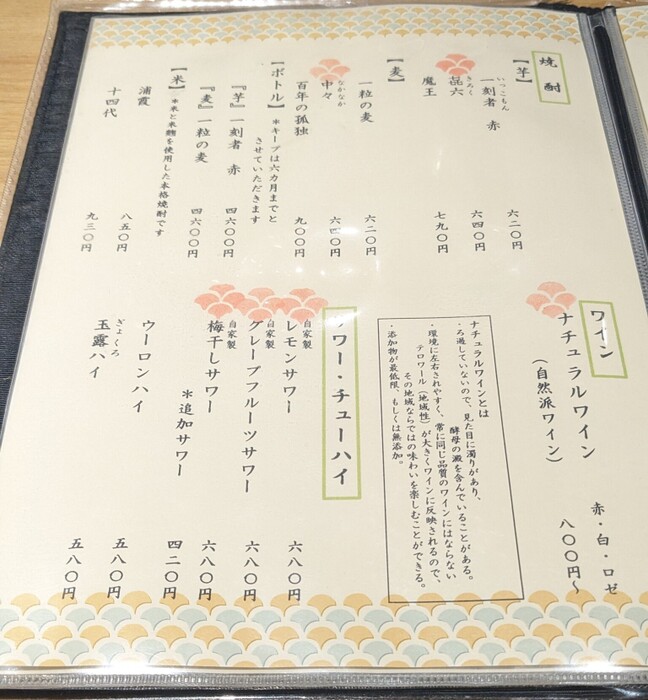 焼酎
【芋】
いっこもん
一刻者 赤 六二〇円
きろく
㐂六 六四〇円
魔王 七九〇円
【麦】
一粒の麦 六二〇円
なかなか
中々 六四〇円
百年の孤独 九〇〇円
【ボトル】＊キープは六カ月までと
させていただきます
『芋』一刻者 赤 四六〇〇円
『麦』一粒の麦 四六〇〇円
【米】＊米と米麹を使用した本格焼酎です
浦霞 八五〇円
十四代 九三〇円
ワイン
ナチュラルワイン
（自然派ワイン）
赤・白・ロゼ
八〇〇円〜
ナチュラルワインとは
・ろ過していないので、見た目に濁りがあり、
酵母の澱を含んでいることがある。
・環境に左右されやすく、常に同じ品質のワインにはならない
テロワール（地域性）が大きくワインに反映されるので、
その地域ならではの味わいを楽しむことができる。
・添加物が最低限、もしくは無添加。
ワー・チューハイ
自家製
レモンサワー 六八〇円
自家製
グレープフルーツサワー 六八〇円
自家製
梅干しサワー 六八〇円
＊追加サワー 四二〇円
ウーロンハイ 五八〇円
ぎょくろ
玉露ハイ 五八〇円